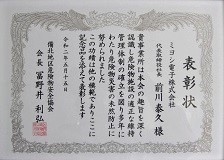 表彰状
ミヨシ電子株式会社
代表取締役社長
前川泰久様
貴事業所は本会の趣旨を深く
認識し危険物施設の適正な維持
管理体制の確立を図り多年に
わたり危険物災害の未然防止に
努められました
この功績は他の模範でありここに
記念品を添えて表彰します
令和二年五月十五日
備北地区危険物安全協会
会長 冨野井利弘